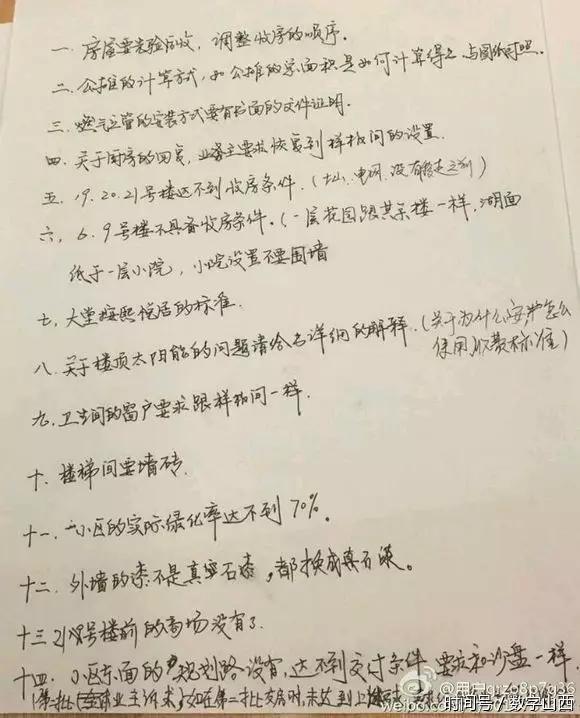 一. 房屋要先验后收，调整收房的顺序.
二. 公摊的计算方式，如公摊的总面积是如何计算得之与图纸对照.
三. 燃气立管的安装方式要有书面的文件证明.
四. 关于厨房的凹包，业主要求恢复到样板间的设置.
五. 19.20.21号楼达不到收房条件.（土山、电网，没有
六，6.9号楼不具备收房条件.（一层花园跟其余楼一样，湖面
低于一层小院，小院设置不要围墙
七、大堂按熙悦居的标准.
八. 关于楼顶太阳能的问题请给名详细的解释.（关于为什么安装怎么
使用，收费标准）
九. 卫生间的窗户要求跟样板间一样.
十. 楼梯间要墙砖.
十一. 小区的实际绿化率达不到70%。
十二. 外墙的漆不是真空石漆，都换成真石漆。
十三 21号楼前的商场没有了.
十四. 小区东面的规划路没有，达不到交付条件，要求和沙盘一样.
(第二批(全体业主诉求)如在第二批交房时，未达到上
@用户grzo8p7g36
weibo.com
时间号/数字山西